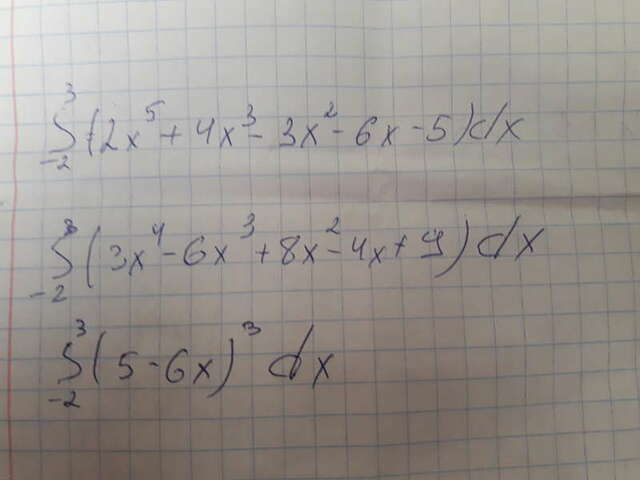 ∫₋₂³ (2x⁵ + 4x³ - 3x² - 6x - 5)dx
∫₋₂³ (3x⁴ - 6x³ + 8x² - 4x + 9)dx
∫₋₂³ (5 - 6x)³ dx